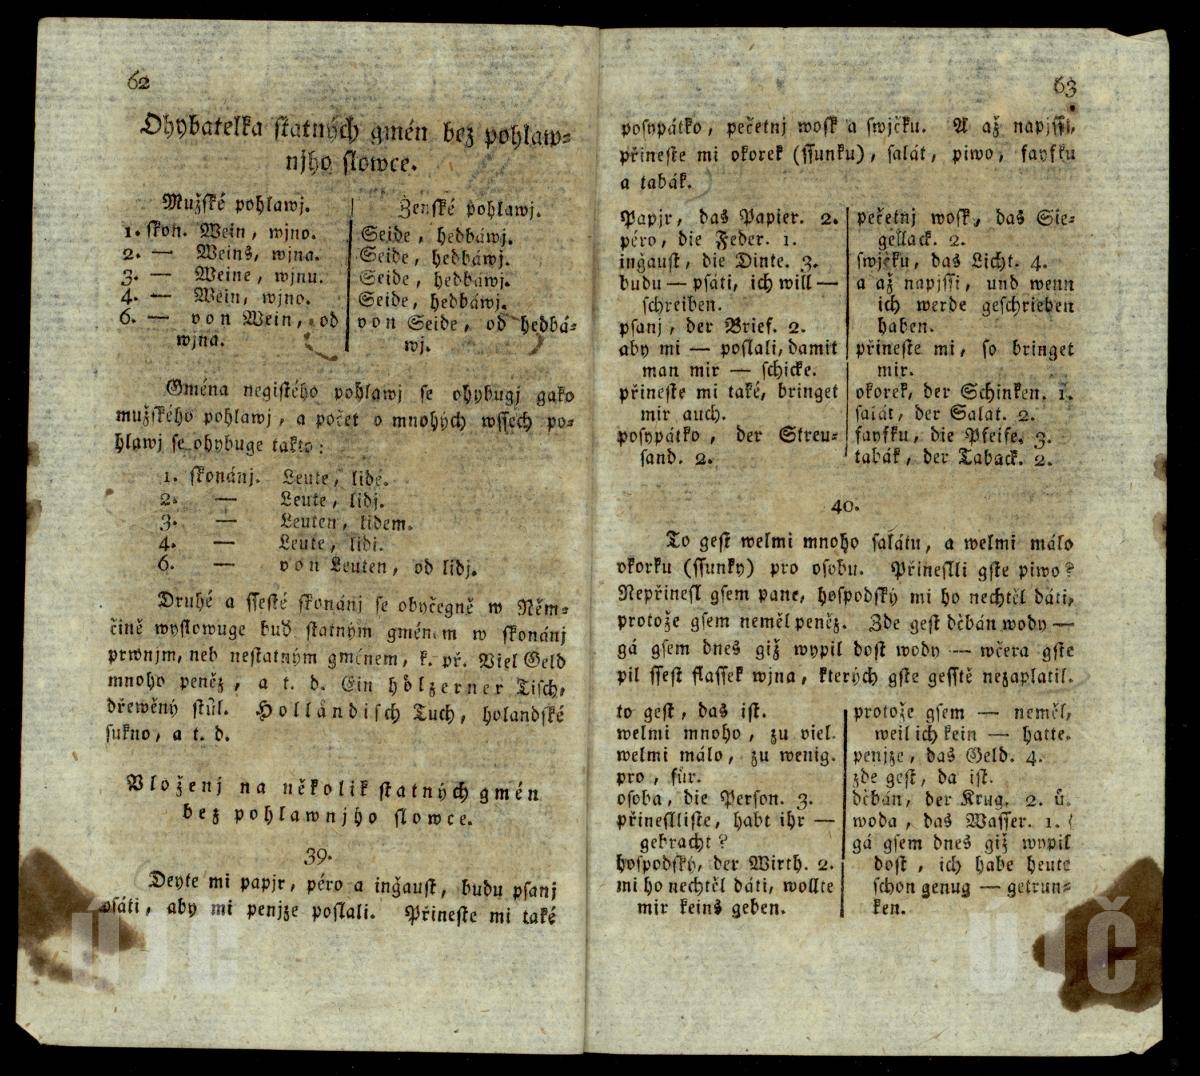 62
Ohybatelka statných gmén bez pohlaw=
njho slowce.
Mužské pohlawj. | Ženské pohlawj.
1. skon. Wein, wjno. | Seide, hedbáwj.
2. — Weins, wjna. | Seide, hedbáwj.
3. — Weine, wjnu. | Seide, hedbáwj.
4. — Wein, wjno. | Seide, hedbáwj.
6. — von Wein, od | von Seide, od hedbá=
wjna. | wj.
Gména negistého pohlawj se ohybugj gako
mužského pohlawj, a počet o mnohých wssech po=
hlawj se ohybuge takto:
1. skonánj. Leute, lidé.
2. — Leute, lidj.
3. — Leuten, lidem.
4. — Leute, lidi.
6. — von Leuten, od lidj.
Druhé a ssesté skonánj se obyčegně w Něm=
čině wyslowuge buď statným gménem w skonánj
prwnjm, neb nestatným gménem, k. př. Viel Geld
mnoho peněz, a t. d. Ein hölzerner Tisch,
dřewěný stůl. Holländisch Tuch, holandské
sukno, a t. d.
Vloženj na několik statných gmén
bez pohlawnjho slowce.
39.
Deyte mi papjr, péro a ingaust, budu psanj
psáti, aby mi penjze poslali. Přineste mi také
63
posypátko, pečetnj wosk a swjčku. A až napjssi,
přineste mi okorek (ssunku), salát, piwo, fayfku
a tabák.
Papjr, das Papier. 2.
péro, die Feder. 1.
ingaust, die Dinte. 3.
budu — psáti, ich will —
schreiben.
psanj, der Brief. 2.
aby mi — poslali, damit
man mir — schicke.
přineste mi také, bringet
mir auch.
posypátko, der Streu=
sand. 2.
pečetnj wosk, das Sie=
gellack. 2.
swjčku, das Licht. 4.
a až napjssi, und wenn
ich werde geschrieben
haben.
přineste mi, so bringet
mir.
okorek, der Schinken. 1.
salát, der Salat. 2.
fayfku, die Pfeife. 3.
tabák, der Taback. 2.
40.
To gest welmi mnoho salátu, a welmi málo
okorku (ssunky) pro osobu. Přineslli gste piwo?
Nepřinesl gsem pane, hospodský mi ho nechtěl dáti,
protože gsem neměl peněz. Zde gest dčbán wody —
gá gsem dnes giž wypil dost wody — wčera gste
pil ssest flassek wjna, kterých gste gesstě nezaplatil.
to gest, das ist.
welmi mnoho, zu viel.
welmi málo, zu wenig.
pro, für.
osoba, die Person. 3.
přineslliste, habt ihr —
gebracht?
hospodský, der Wirth. 2.
mi ho nechtěl dáti, wollte
mir keins geben.
protože gsem — neměl,
weil ich kein — hatte.
penjze, das Geld. 4.
zde gest, da ist.
dčbán, der Krug. 2. ů.
woda, das Wasser. 1.
gá gsem dnes giž wypil
dost, ich habe heute
schon genug — getrun=
ken.
ÚJČ
ÚJČ